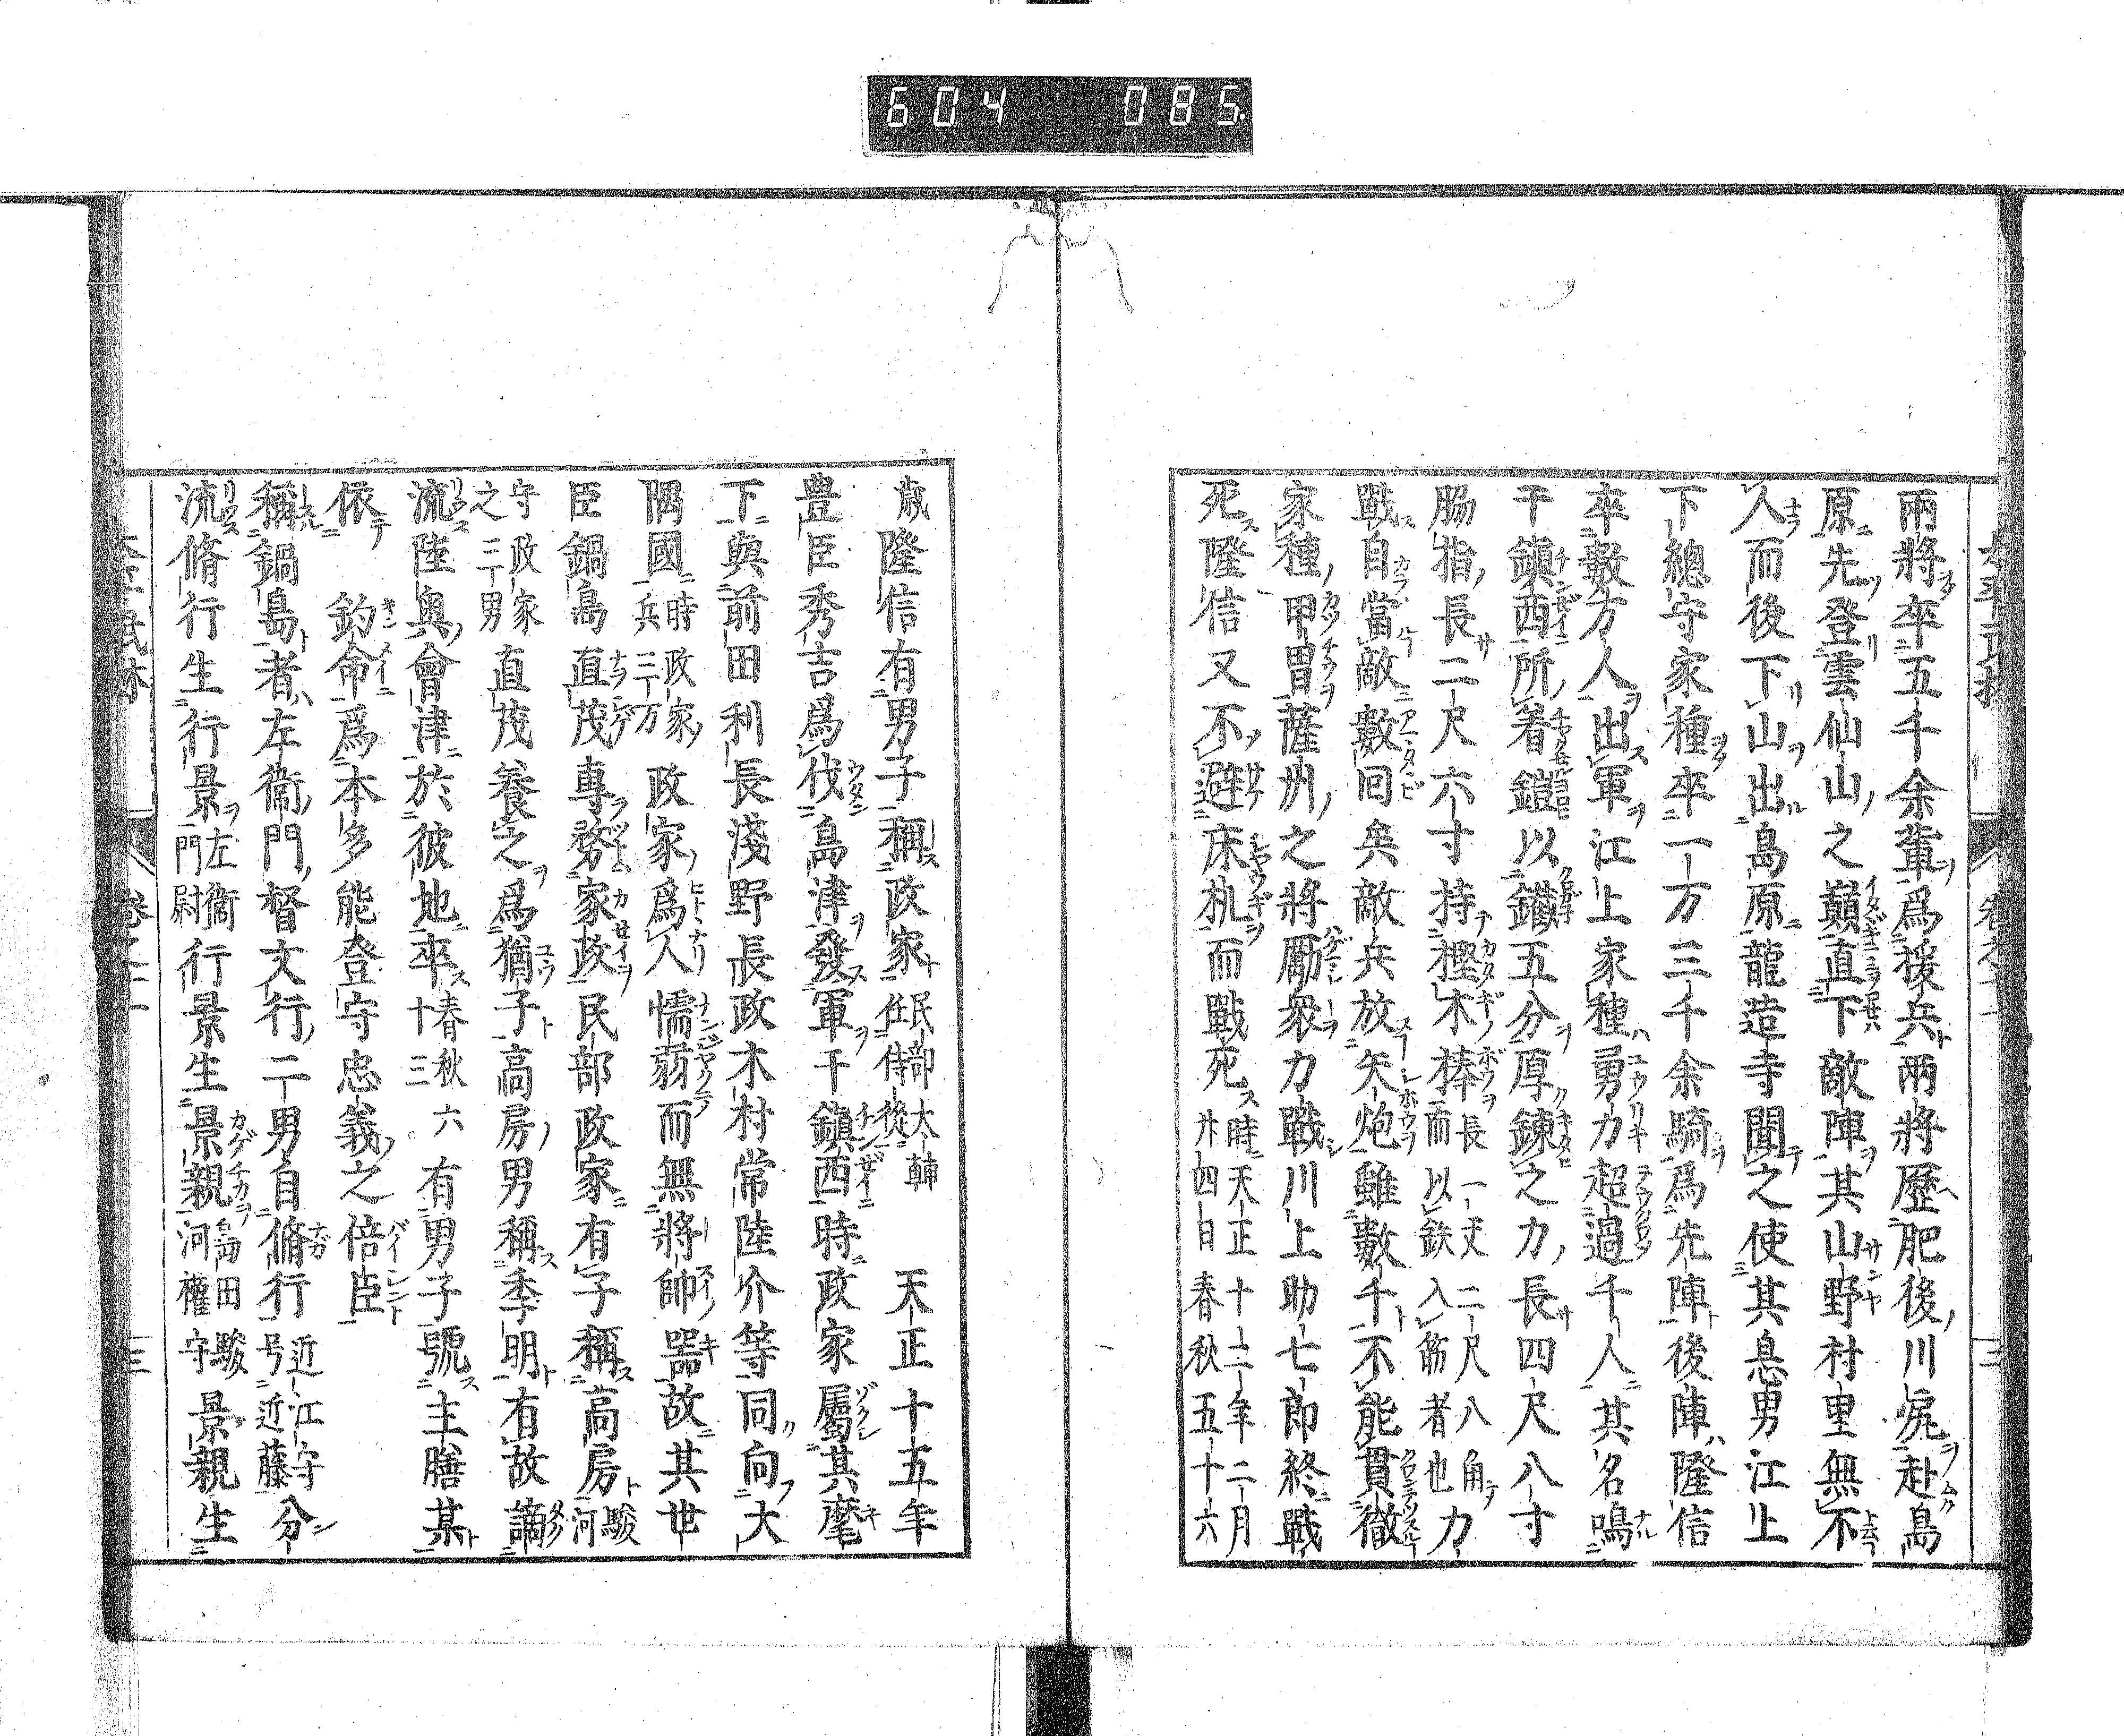 604 085
兩將卒五千余輩爲援兵兩將歷肥後川尻赴島
原先登雲仙山之巓直下敵陣其山野村里無不
入而後下山出島原龍造寺聞之使其息男江上
下總守家種卒一万三千余騎爲先陣後陣隆信
卒數万人出軍江上家種勇力超過千人其名鳴
干鎭西所着鎧以鐵五分厚鍊之力長四尺八寸
脇指長二尺六寸持樫木棒而長一丈二尺八角以鉄入筋者也力
戰自當敵數回矣敵兵放矢炮雖數千不能貫徹
家種甲冑薩州之將勵衆力戰川上助七郎終戰
死隆信又不避床机而戰死時天正十二年二月廿四日春秋五十六
歲隆信有男子稱政家民部大輔任侍從 天正十五年
豊臣秀吉爲伐島津發軍干鎭西時政家屬其麾
下與前田利長淺野長政木村常陸介等同向大
隅國時政家兵三万政家爲人懦弱而無將帥器故其世
臣鍋島直茂專務家政民部政家有子稱高房駿河
守政家之三男直茂養之爲猶子高房男稱季明有故謫
流陸奥會津於彼地卒春秋六十三有男子號主膳某
依 釣命爲本多能登守忠義之倍臣
稱鍋島者左衞門督文行二男自脩行近江守号近藤分
流脩行生行景左衞門尉行景生景親島田駿河權守景親生